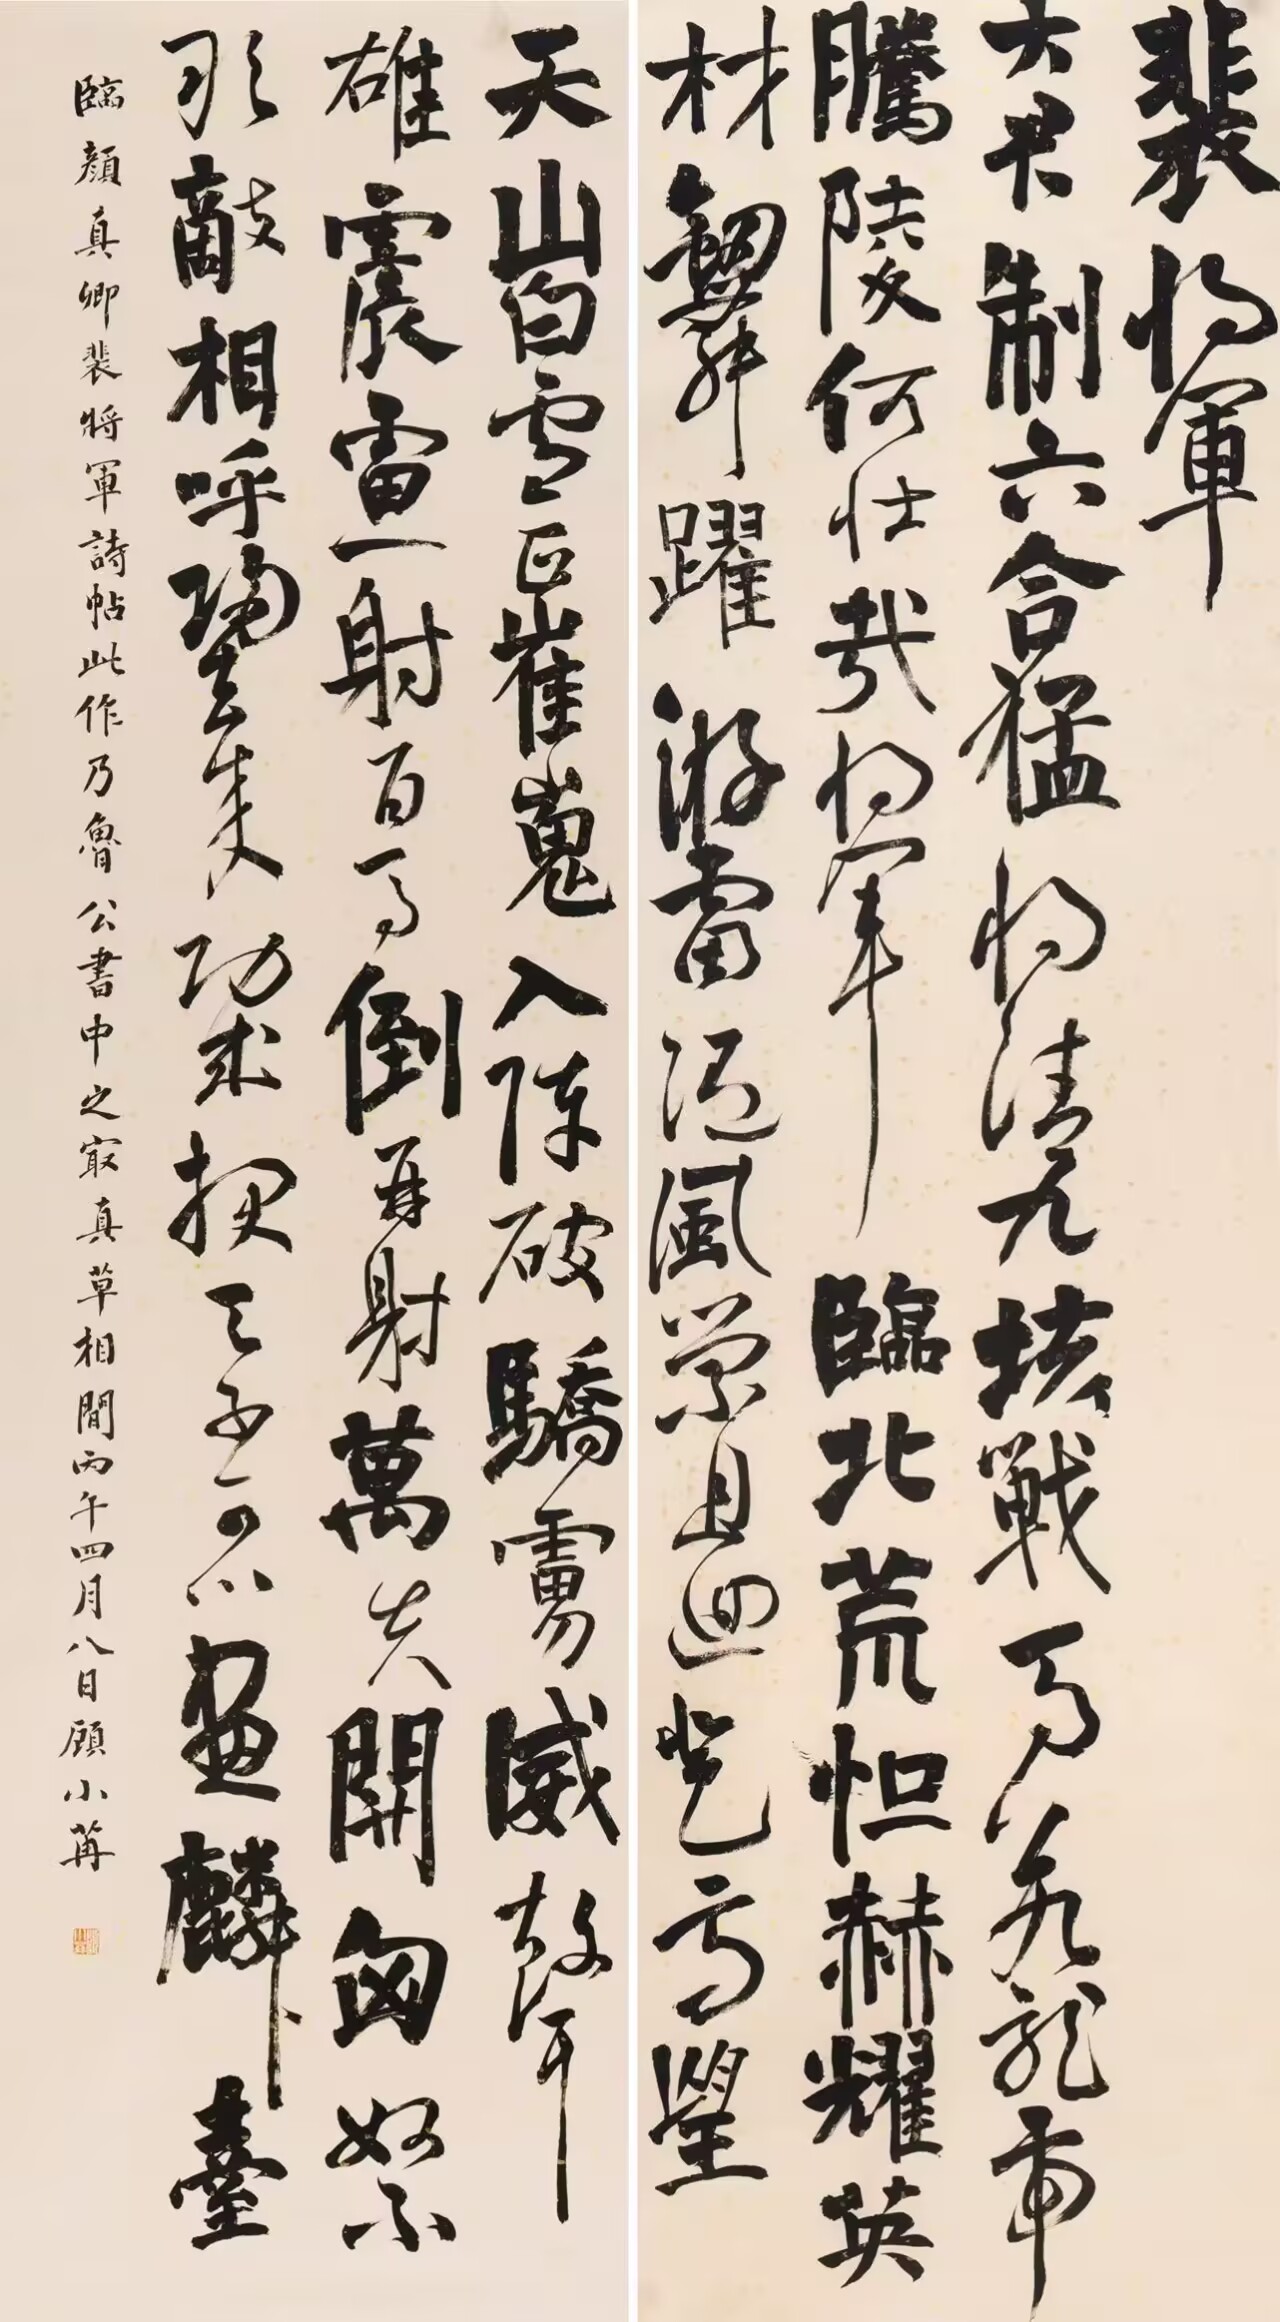 裴将軍
大君制六合猛将清九垓戰馬若龍虎
騰陵何壮哉将軍臨北荒怛赫耀英
材劒舞躍游雷随風縈且迴登高望
天山白雪正崔嵬入陣破驕虜威聲
雄震雷一射百馬倒再射萬夫開匈奴不
敢敵相呼歸去来功成報天子可以畫麟臺
臨顔真卿裴将軍詩帖此作乃魯公書中之寂真草相間丙午四月八日顧小苒